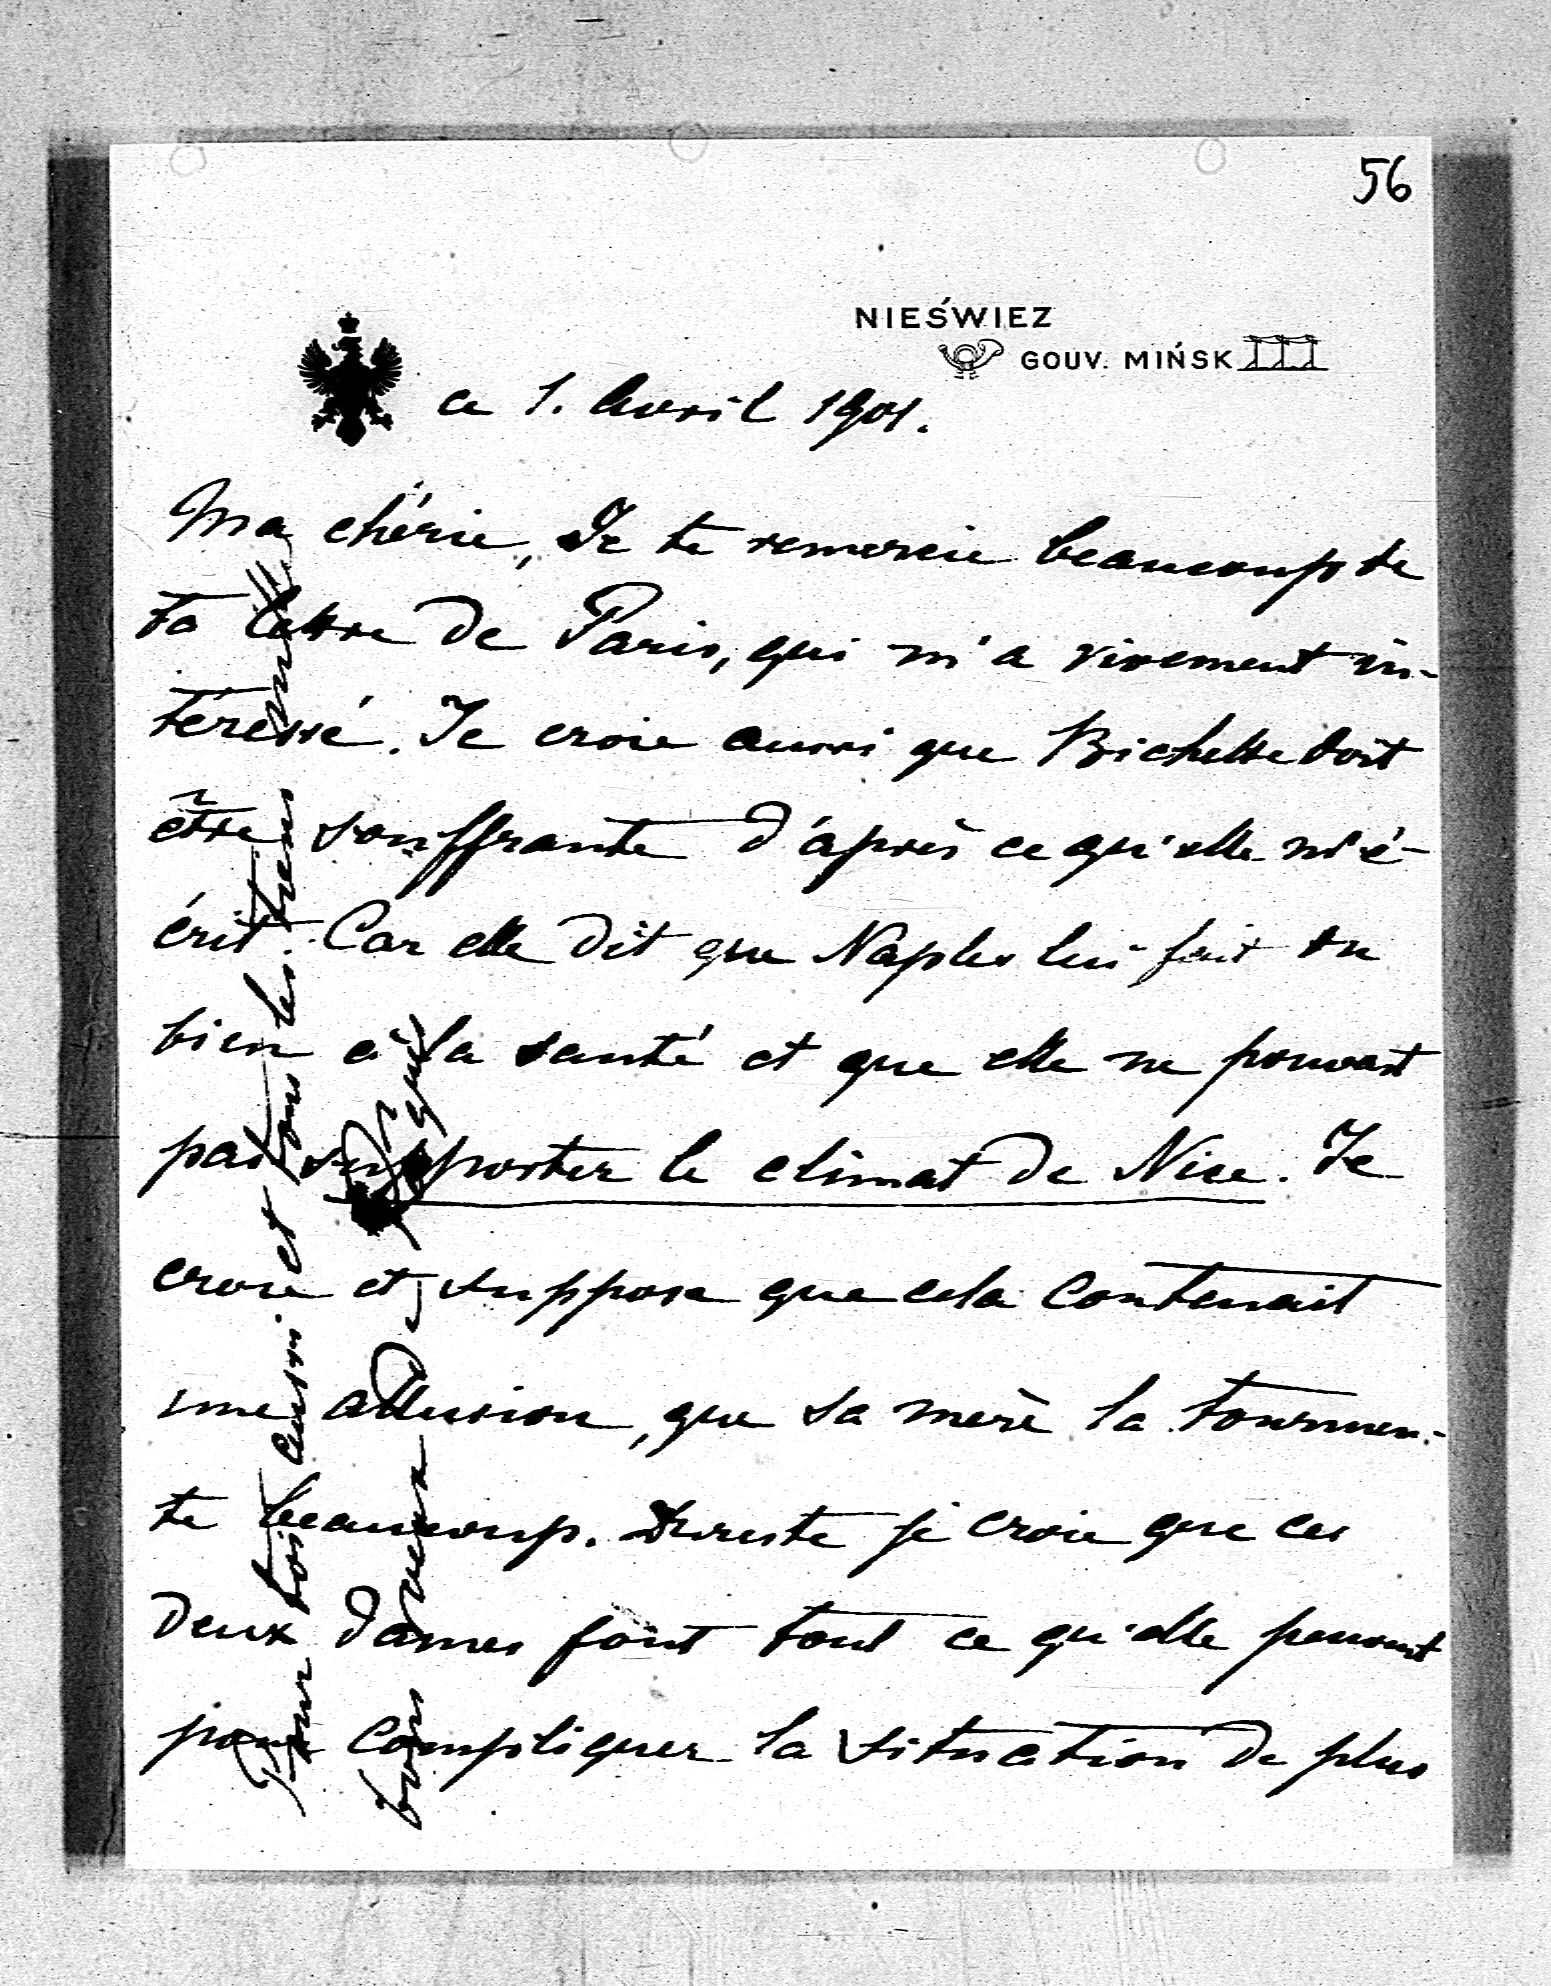 56
NIEŚWIEZ
GOUV. MIŃSK
ce 1. Avril 1901.
Ma chérie, Je te remercie beaucoup de
ta lettre de Paris, qui m'a vivement in-
téressé. Je croie aussi que Bichette doit
être souffrante d'après ce qu'elle m'é-
écrit. Car elle dit que Naples lui fait du
bien à la santé et que elle ne pouvait
pas supporter le climat de Nice. Je
croie et suppose que cela contenait
une allusion, que sa merè la tourmen-
te beaucoup. Dureste je croie que ces
deux dames font tout ce qu'elle peuvent
pour compliquer la situation de plus
Pour toi aussi et tous les tiens mille
bons vœux de Pâques